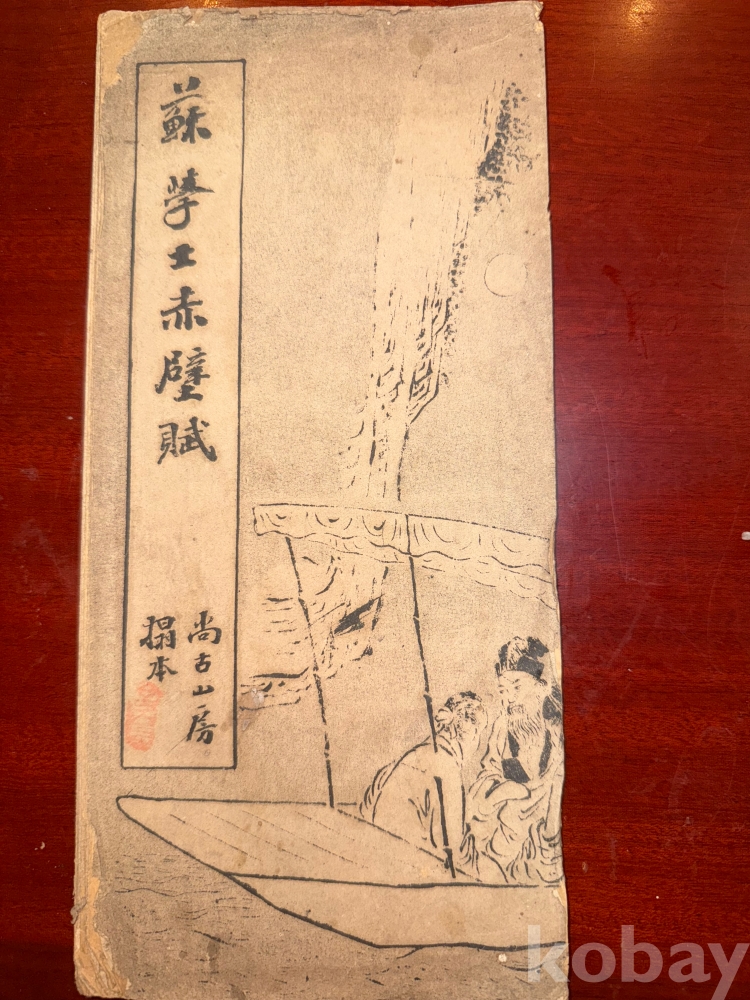 蘇學士赤壁賦
尚古山房
搨本
kobay